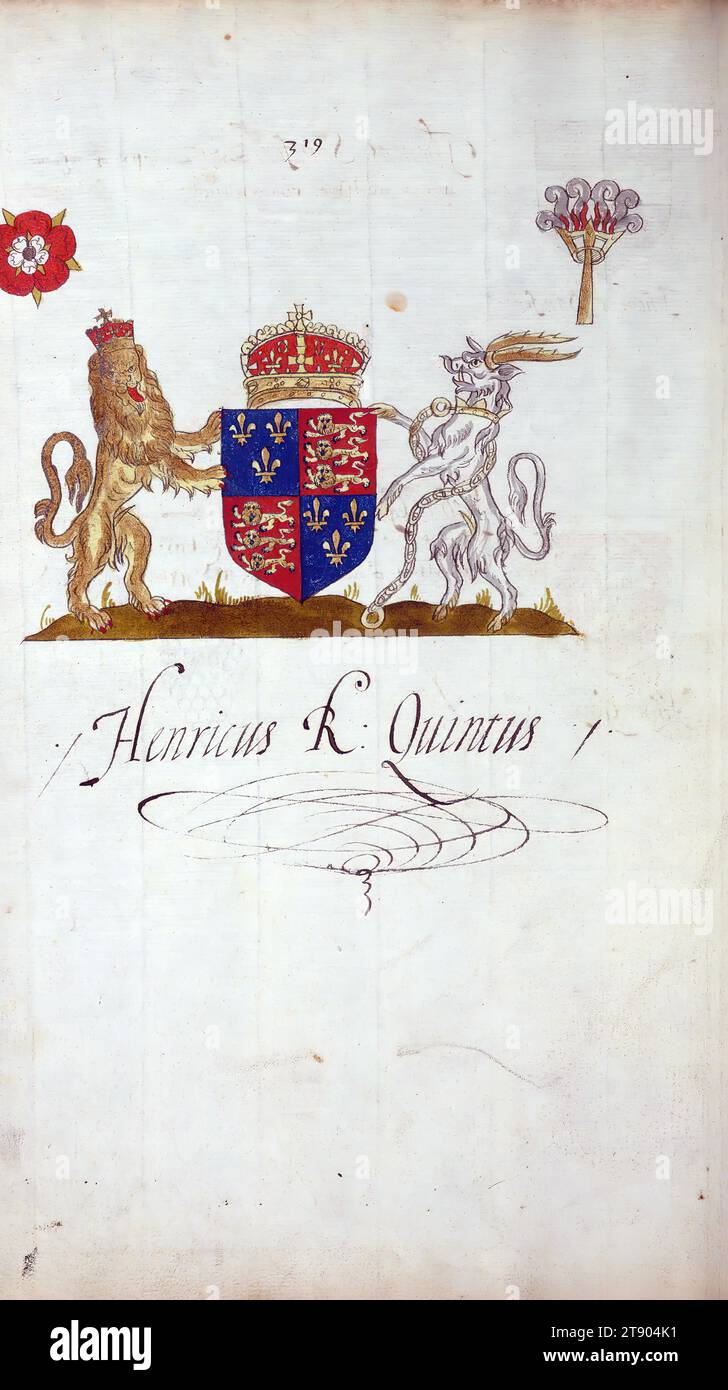 319
Henricus R: Quintus
alamy
alamy
alamy
alamy
Image ID: 2T904K1
www.alamy.com